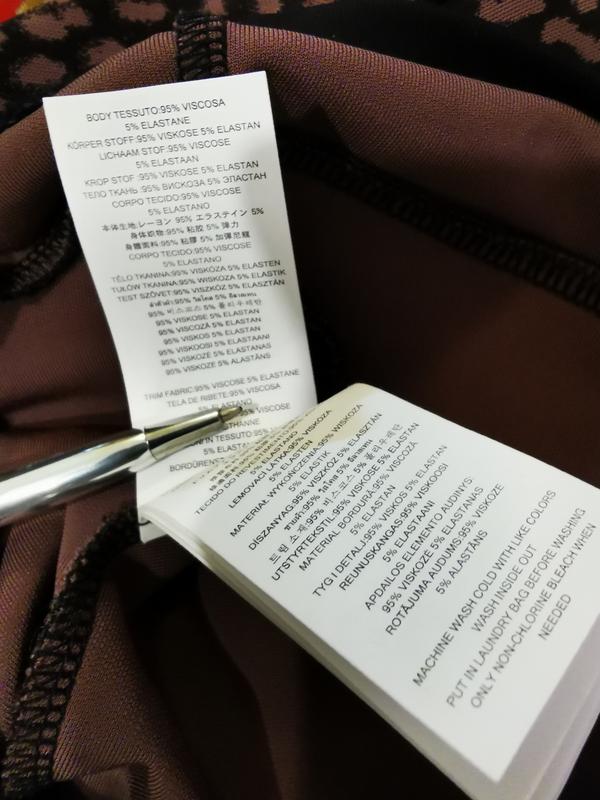 BODY TESSUTO:95% VISCOSA
5% ELASTANE
KÖRPER STOFF:95% VISKOSE 5% ELASTAN
LICHAAM STOF:95% VISCOSE
5% ELASTAAN
KROP STOF :95% VISKOSE 5% ELASTAN
ТЕЛО ТКАНЬ :95% ВИСКОЗА 5% ЭЛАСТАН
CORPO TECIDO:95% VISCOSE
5% ELASTANO
本体生地:レーヨン 95% エラステイン 5%
身体织物:95% 粘胶 5% 弹力
身體面料:95% 粘膠 5% 加彈尼龍
CORPO TECIDO:95% VISCOSE
5% ELASTANO
TĚLO TKANINA:95% VISKÓZA 5% ELASTEN
TUŁÓW TKANINA:95% WISKOZA 5% ELASTIK
TEST SZÖVET:95% VISZKÓZ 5% ELASZTÁN
95% 비스코스 5% 폴리우레탄
95% VISKOSE 5% ELASTAN
95% VISCOZĂ 5% ELASTAN
95% VISKOS 5% ELASTAN
95% VISKOOSI 5% ELASTAANI
95% VISKOZĖ 5% ELASTANAS
95% VISKOZE 5% ELASTĀNS
TRIM FABRIC:95% VISCOSE 5% ELASTANE
TELA DE RIBETE:95% VISCOSA
5% ELASTANO
VISCOSE
IN TESSUTO:95%
5%
BORDÜREN
TECIDO DO REVESTIMENTO:95%
5% ELASTANO
LEMOVACÍ LÁTKA:95% VISKÓZA
5% ELASTEN
MATERIAŁ WYKOŃCZENIA:95% WISKOZA
5% ELASTIK
DÍSZANYAG:95% VISZKÓZ 5% ELASZTÁN
트림 소재:95% 비스코스 5% 폴리우레탄
UTSTYRTEKSTIL:95% VISKOSE 5% ELASTAN
MATERIAL BORDURĂ:95% VISCOZĂ
5% ELASTAN
TYG I DETALJ:95% VISKOS 5% ELASTAN
REUNUSKANGAS:95% VISKOOSI
5% ELASTAANI
APDAILOS ELEMENTO AUDINYS:
95% VISKOZĖ 5% ELASTANAS
ROTĀJUMA AUDUMS:95% VISKOZE
5% ELASTĀNS
MACHINE WASH COLD WITH LIKE COLORS
WASH INSIDE OUT
PUT IN LAUNDRY BAG BEFORE WASHING
ONLY NON-CHLORINE BLEACH WHEN
NEEDED